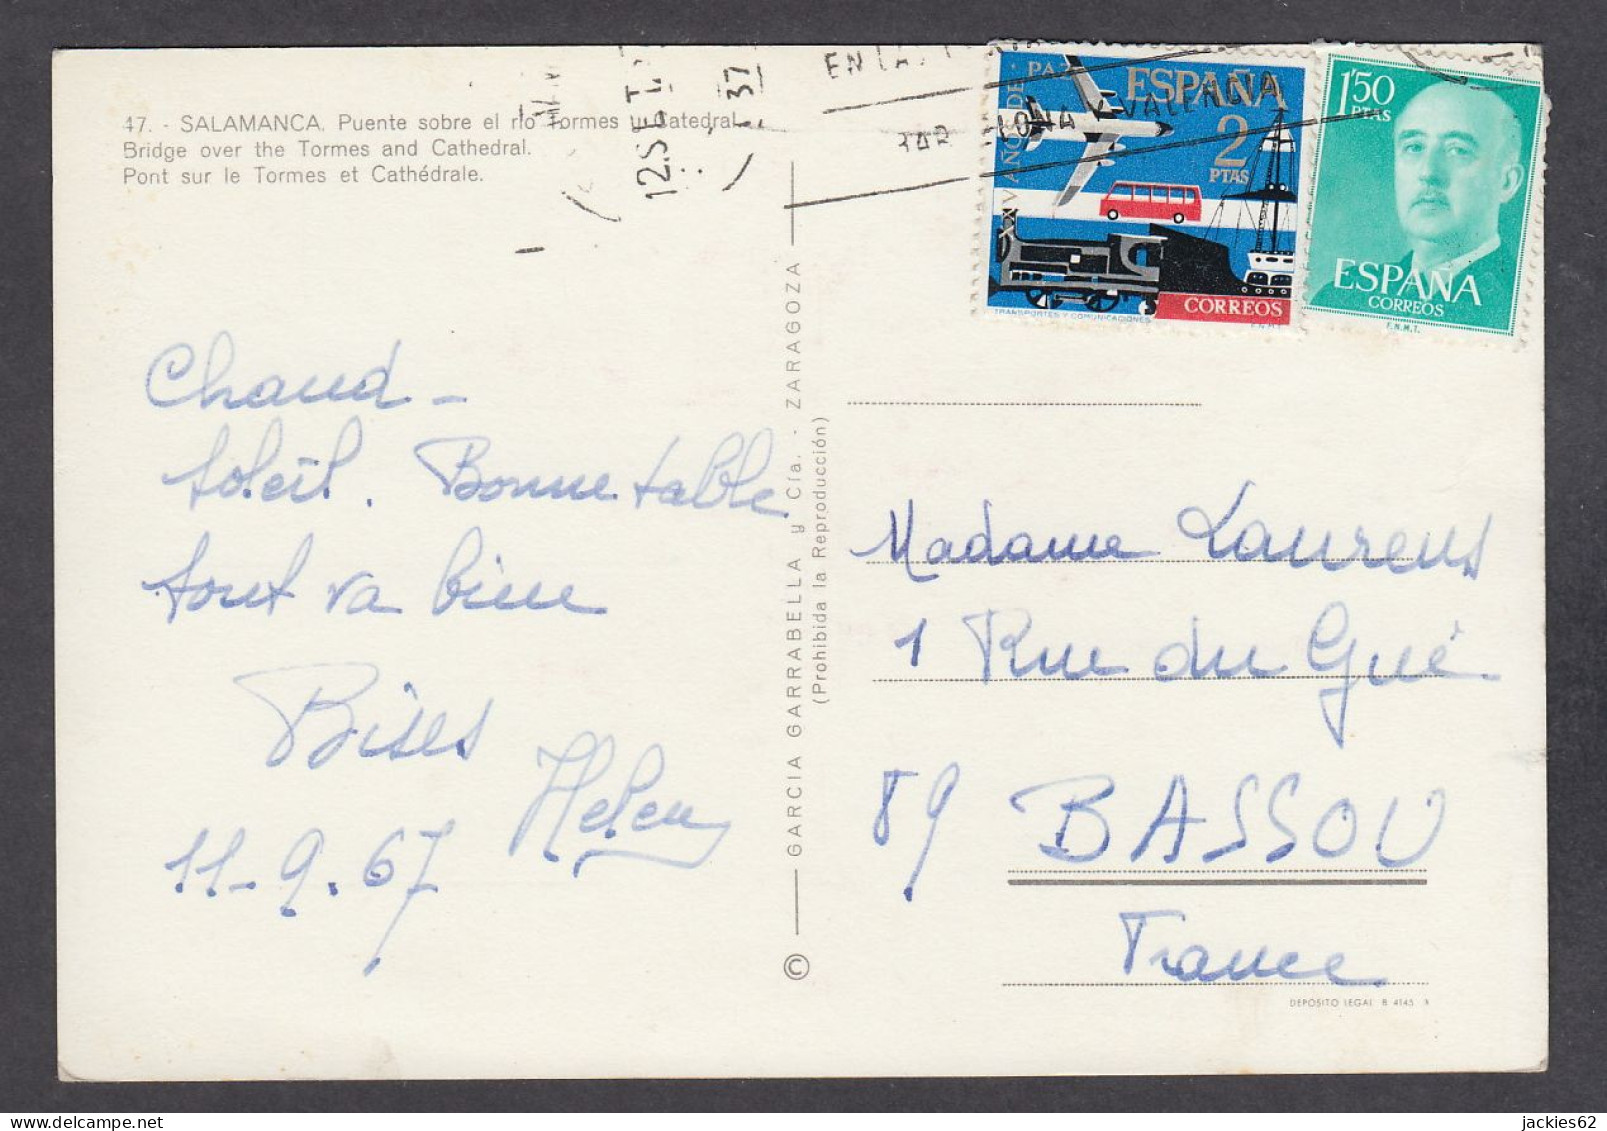 47. - SALAMANCA. Puente sobre el río Tormes y Catedral.
Bridge over the Tormes and Cathedral.
Pont sur le Tormes et Cathédrale.
12 SET
37
EN LA
BAR ELONA Y VALENCIA
XXV AÑOS DE PAZ
ESPAÑA
2
PTAS
CORREOS
TRANSPORTES Y COMUNICACIONES
F.N.M.T.
1'50
PTAS
ESPAÑA
CORREOS
F.N.M.T.
Chaud -
soleil. Bonne table
tout va bien
Bises
Helen
11-9.67
© GARCIA GARRABELLA y Cía. - ZARAGOZA
(Prohibida la Reproducción)
Madame Laurens
1 Rue du Gué
89 BASSOU
France
DEPOSITO LEGAL B 4145 X
jackies62